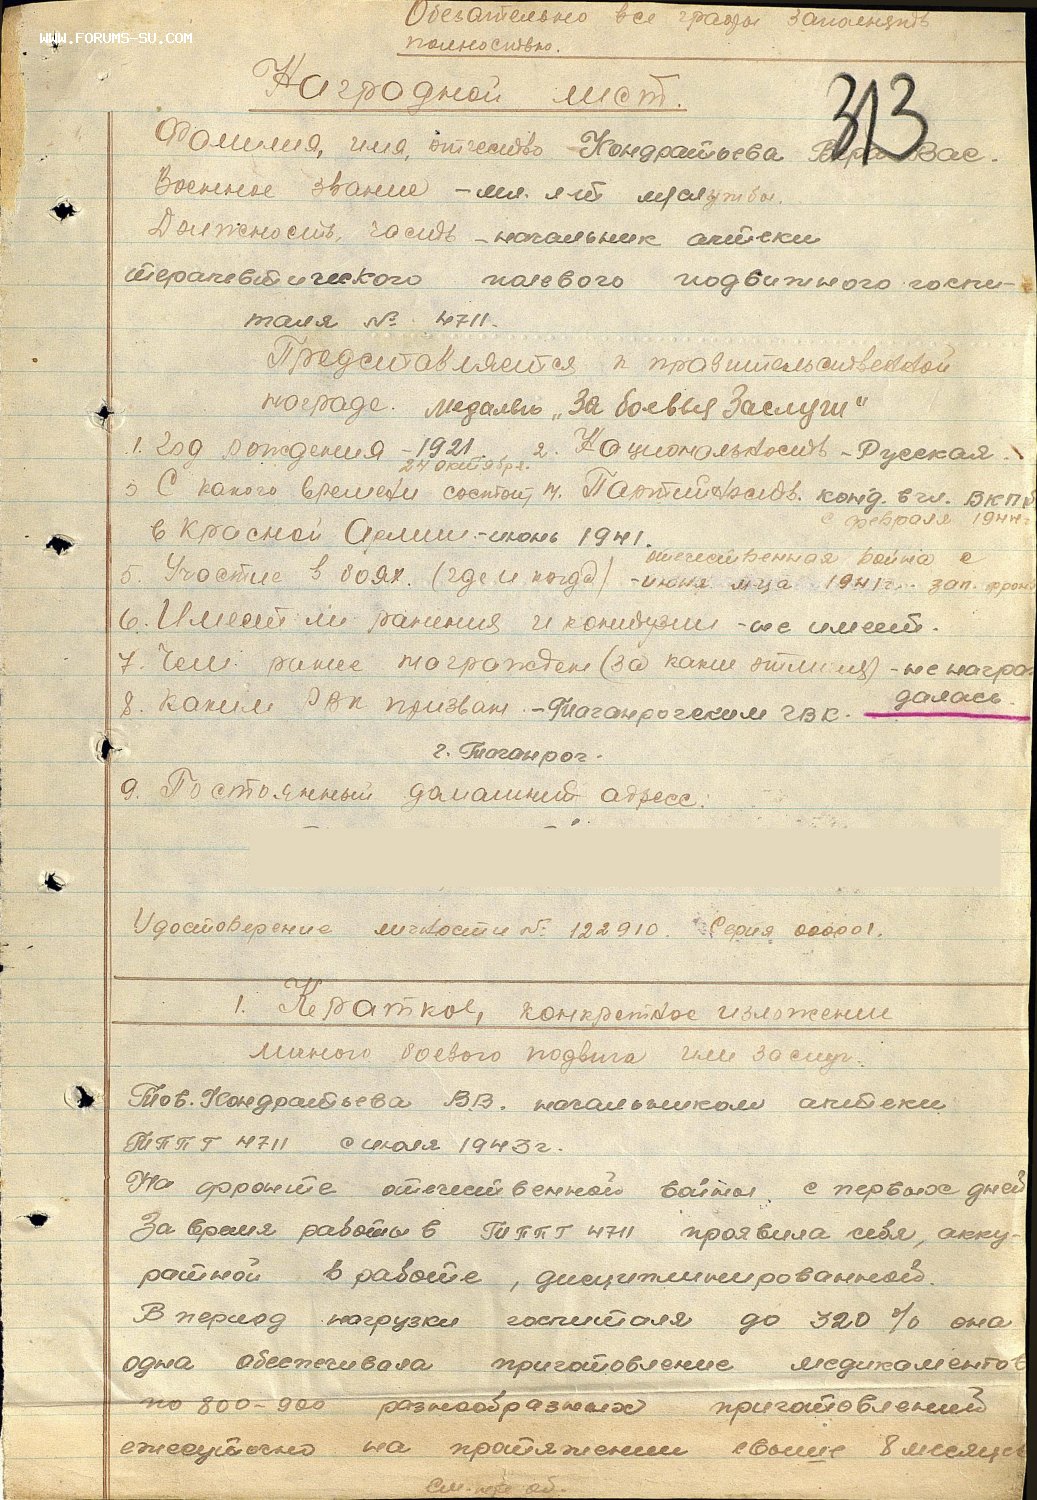 WWW.FORUMS-SU.COM
Обязательно все графы заполнять
полностью.
313
Наградной лист.
Фамилия, имя, отчество - Кондратьева Вера Вас.
Военное звание - мл. л-т м/службы.
Должность, часть - начальник аптеки
терапевтического полевого подвижного госпи-
таля № 4711.
Представляется к правительственной
награде. медалью „За боевые Заслуги"
1. Год рождения - 1921. 2. Национальность - Русская.
24 октября.
3 С какого времени состоит 4. Партийность. канд. в чл. ВКП(б
с февраля 1944г
в Красной Армии - июнь 1941.
отечественная война с
5. Участие в боях. (где и когда) - июня м-ца 1941г. зап. фронт
6. Имеет ли ранения и контузии - не имеет.
7. Чем ранее награжден (за какие отличия) - не награж
далась.
8. Каким РВК призван. - Таганрогским ГВК.
г. Таганрог.
9. Постоянный домашний адресс.
Удостоверение личности № 122910. Серия 000001.
1. Краткое, конкретное изложение
личного боевого подвига или заслуг.
Тов. Кондратьева В.В. начальником аптеки
ТППГ 4711 с июля 1943г.
На фронте отечественной войны с первых дней
За время работы в ТППГ 4711 проявила себя, акку-
ратной в работе, дисциплинированной.
В период нагрузки госпиталя до 320% она
одна обеспечивала приготовление медикаментов
по 800-900 разнообразных приготовлений
ежесуточно на протяжении свыше 8 месяцев
см. об.